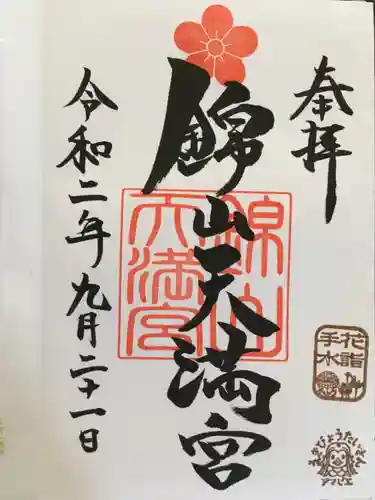 奉拝
錦山天満宮
錦山
天満宮
令和二年九月二十一日
花詣
手水
アマビエ